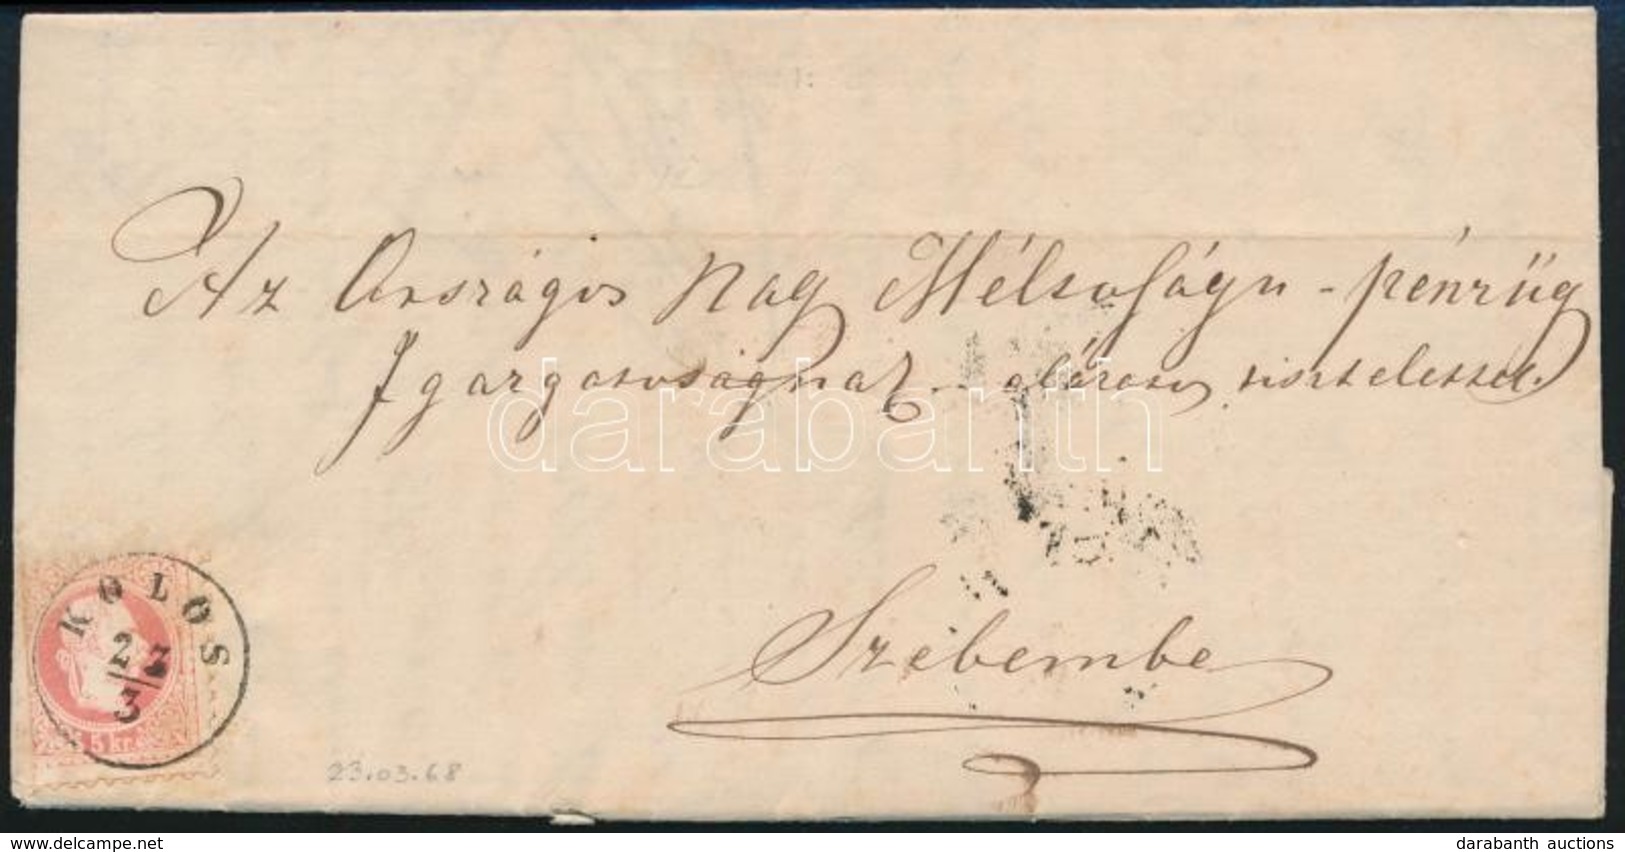 Az Országos Nag Méltoságu - pénzüg
Igazgatoságnak - alázatos tisztelettel.
darabanth
Szebembe
KOLOS
23/3
5 kr.
23.03.68
delcampe.net
darabanth auctions